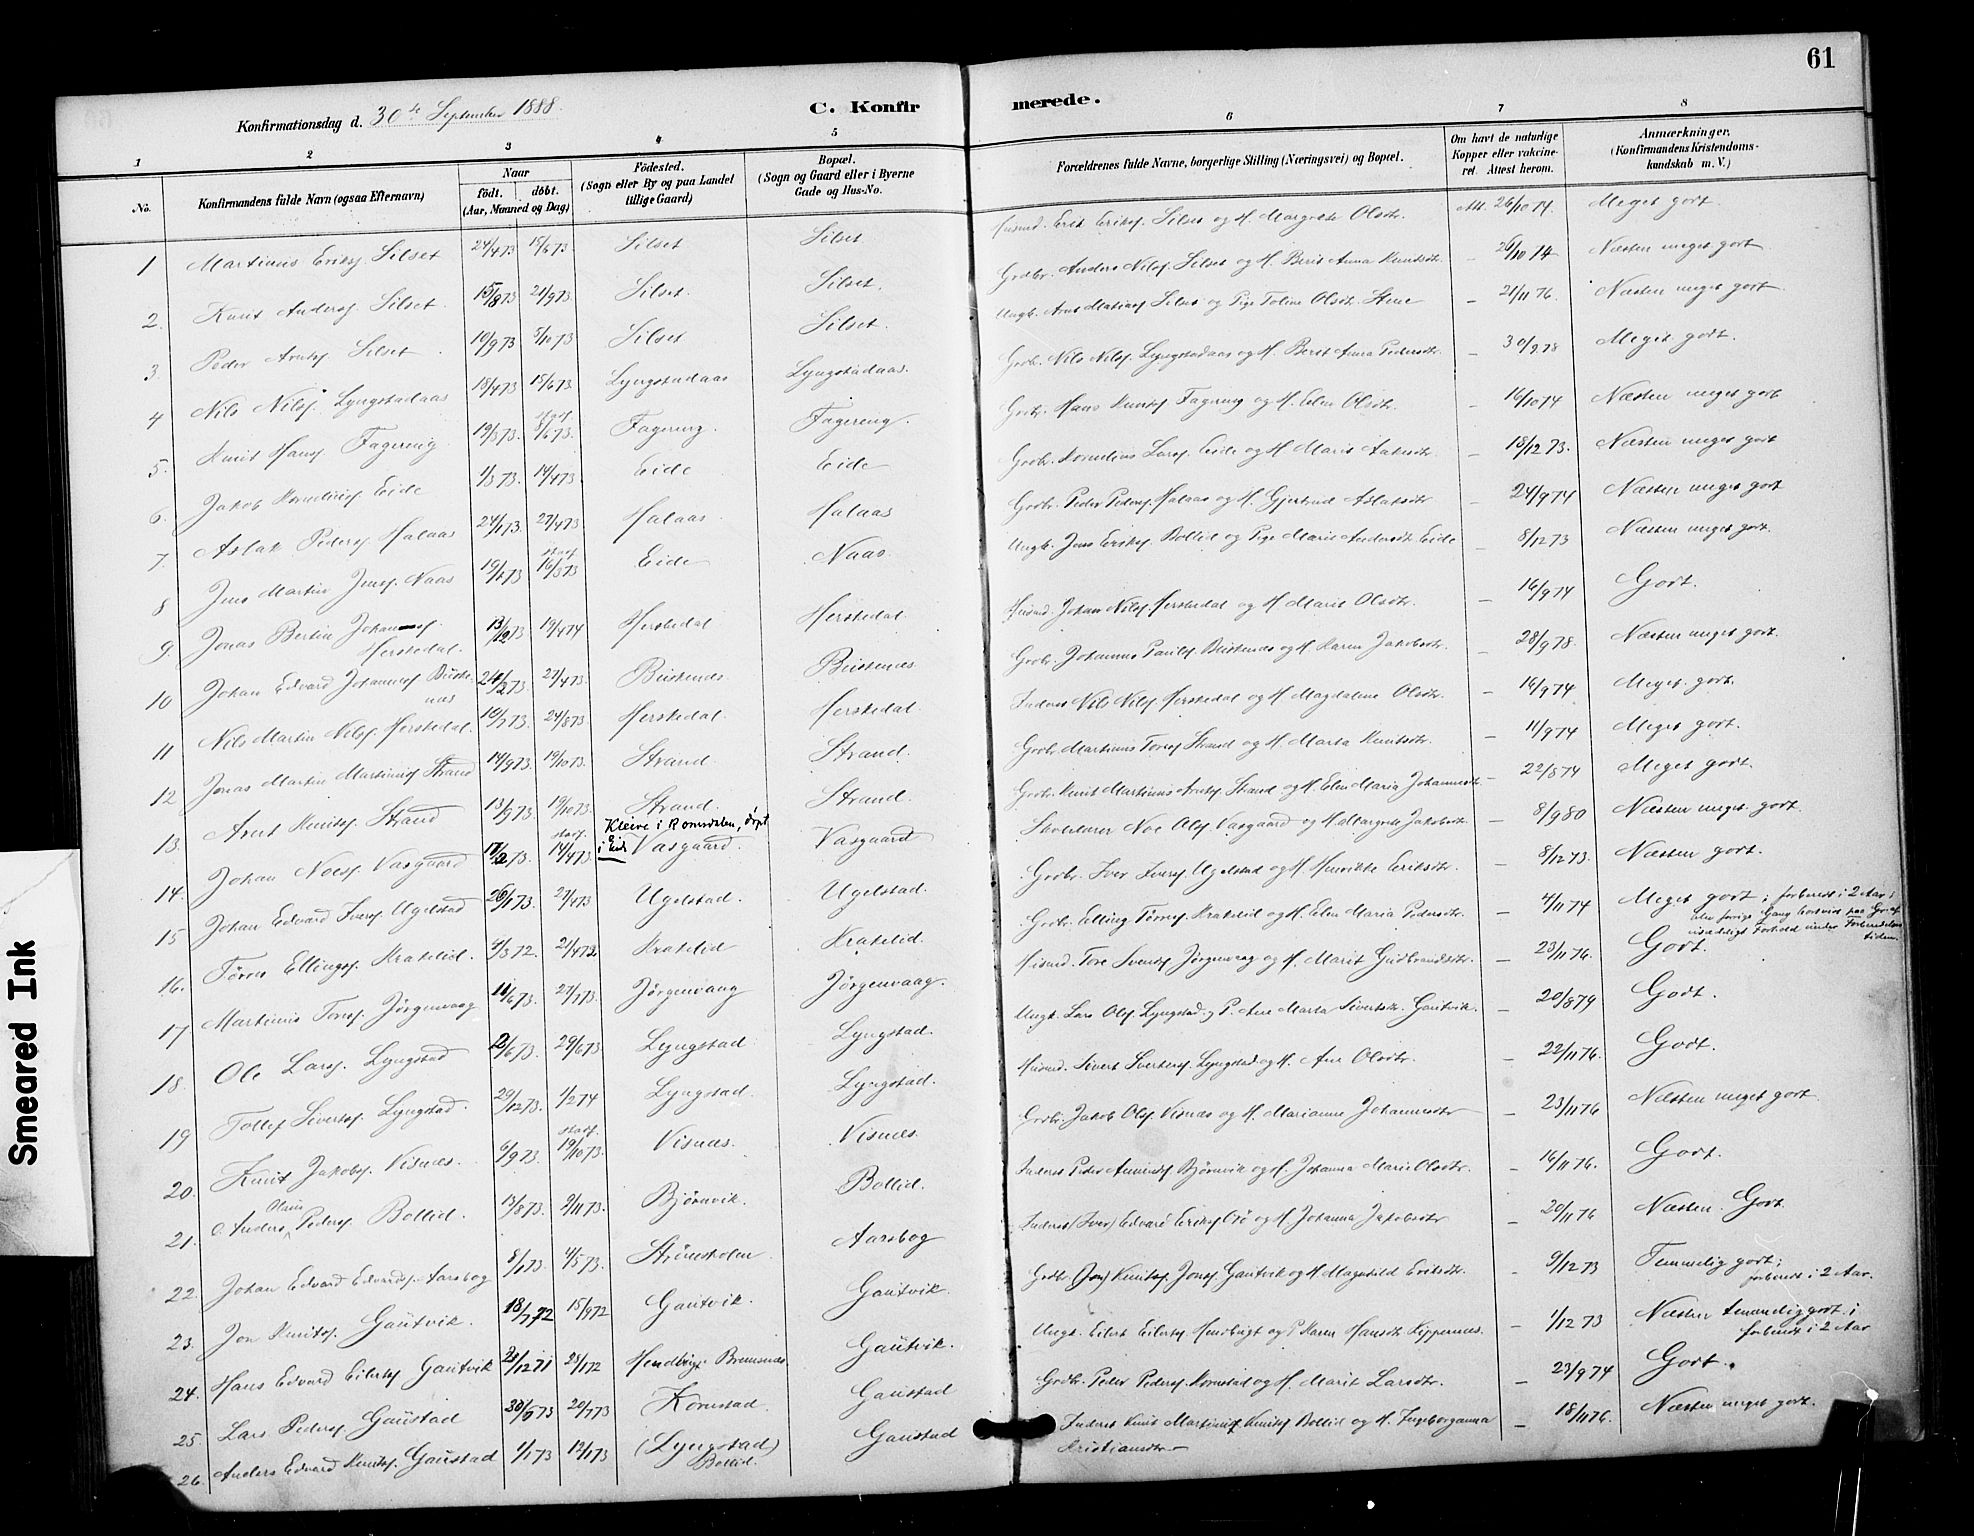 61
Konfirmationsdag d. 30te September 1888.
C. Konfirmerede.
1 2 3 4 5 6 7 8
No. Konfirmandens fulde Navn (ogsaa Efternavn) Naar födt. döbt. (Aar, Maaned og Dag) Födested. (Sogn eller By og paa Landet tillige Gaard) Bopæl. (Sogn og Gaard eller i Byerne Gade og Hus-No. Forældrenes fulde Navne, borgerlige Stilling (Næringsvei) og Bopæl. Om havt de naturlige Kopper eller vakcineret. Attest herom. Anmærkninger. (Konfirmandens Kristendomskundskab m. V.)
1 Martinus Eriks. Silset 24/4 73 15/6 73 Silset Silset Husmd. Erik Eriks. Silset og H. Margrete Olsdtr. Att. 26/10 74. Meget godt.
2. Knut Anders. Silset 15/8 73 21/9 73 Silset. Silset. Grdbr. Anders Nils. Silset og H. Berit Anna Knutsdtr. – 26/10 74 Næsten meget godt.
3. Peder Arnts. Silset 10/9 73 5/10 73 Silset Silset. Ungk. Arnt Silset og Pige Toline Olsdtr. Stene – 21/11 76. Næsten meget godt.
4 Nils Nils. Lyngstadaas 18/4 73 15/6 73. Lyngstadaas Lyngstadaas. Grdb. Nils Nils. Lyngstadaas og H. Berit Anna Pedersdtr. – 30/9 78 Meget godt.
5. Knut Hans. Fagereng 19/3 73. 8/6 73. Fagereng. Fagereng. Grdbr. Hans Knuts. Fagereng og H. Elen Olsdtr. – 16/10 74 Næsten meget godt
6. Jakob Kornelius. Eide 1/3 73. 14/4 73 Eide Eide Grdbr. Kornelius Lars. Eide og H. Marit – 18/12 73. Næsten meget godt
7. Aslak Peders. Halaas 24/1 73. 27/4 73 Halaas. Halaas Grdbr. Peder Peders. Halaas og H. Gjertrud Aslaksdtr – 24/9 74 Næsten meget godt
8 Jens Martin Jens. Naas 16/3 73 Eide Naas Ungk. Jens Eriks. Bollid og Pige Marit Andersdtr. Eide – 8/12 73 Næsten meget godt.
9. Jonas Bertin Johans. Herskedal. 13/12 73 19/4 74 Herskedal Herskedal. Husmd. Johan Nils. Herskedal og H. Marit Olsdtr. – 16/9 74 Godt.
10 Johan Edvard Johannes. Buskenæs 27/4 73. Buskenæs Buskenæs Grdbr. Johannes Pauls. Buskenæs og H. Karen Jakobsdtr. – 28/9 78. Næsten meget godt.
11 Nils Martin Nils. Herskedal. 10/7 73. 24/8 73. Herskedal Herskedal. Inderst Nils Nils. Herskedal og H. Magdalene Olsdtr. – 16/9 74 Meget godt.
12 Jonas Martin Martinus. Strand 14/9 73. 19/10 73. Strand. Strand. Grdbr. Martinus Tores. Strand og H. Marta Knutsdtr. – 11/9 74 Meget godt.
13. Arnt Knuts. Strand 13/9 73. 19/10 73. Strand. Strand. Grdbr. Knut Martinus Arnts. Strand og H. Elen Maria Johannesdtr – 22/8 74 Meget godt.
14. Johan Noes. Vasgaard 17/2 73. 14/4 73. Kleive i Romsdalen, döpt i Eide Vasgaard. Vasgaard Skolelærer Noe Ols. Vasgaard og H. Margrete Jakobsdtr – 8/9 80 Næsten meget godt.
15 Johan Edvard Ivers. Ugelstad 26/1 73. 27/4 73 Ugelstad. Ugelstad. Grdbr. Iver Ivers. Ugelstad og H. Henrikke Eriksdtr. – 8/12 73. Næsten godt.
16. Töres Ellings. Krakelid. 4/3 72. 21/4 72 Krakelid Krakelid. Grdb. Elling Töres. Krakelid og H. Elen Maria Pedersdtr. – 4/11 74 Meget godt; forberedt i 2 Aar; Forhold under Forberedelsestiden.
17 Martinus Tores. Jörgenvaag 11/6 73. 27/7 73. Jörgenvaag Jörgenvaag. Husmd. Tore Svends. Jörgenvaag og H. Marit Gudbrandsdtr. – 23/11 76. Godt.
18. Ole Lars. Lyngstad 2/6 73. 29/6 73. Lyngstad Lyngstad. Ungk. Lars Ols. Lyngstad og P. Ane Marta Sivertsdtr. Gautvik. – 20/8 79 Godt.
19 Tollef Siverts. Lyngstad. 29/12 73. 1/2 74 Lyngstad. Lyngstad. Husmd. Sivert Siverts. Lyngstad og H. Ane Olsdtr. – 22/11 76. Godt.
20. Knut Jakobs. Visnæs. 6/9 73. 19/10 73. Visnæs. Visnæs. Grdbr. Jakob Ols. Visnæs og H. Marianne Johannesdtr – 23/11 76 Næsten meget godt.
21. Anders Olaus Peders. Bollid. 13/8 73. 2/11 73. Bjørnvik. Bollid. Inderst Peder Amunds. Bjørnvik og H. Johanna Marie Olsdtr. – 16/11 76. Godt.
22. Johan Edvard Edvards. Aarsbog 8/1 73. 4/5 73. Strömsholm Aarsbog Inderst (Iver) Edvard Eriks. Otö og H. Johanna Jakobsdtr – 20/11 76 Næsten Godt
23. Jon Knuts. Gautvik. 18/7 72 15/9 72 Gautvik. Gautvik. Grdbr. (Jon) Knuts. Jons. Gautvik og H. Magnhild Eriksdtr. – 9/12 73 Temmelig godt; forberedt i 2 Aar.
24. Hans Edvard Eilerts. Gautvik 28/12 71 28/1 72 Hendbugt Bremsnæs Gautvik. Ungk. Eilert Eilerts. Hendbugt og P. Karen Hansdtr. Kippernæs. – 1/12 73 Næsten temmelig godt; forberedt i 2 Aar
25. Lars Peders. Gaustad 20/7 73 Kornstad. Gaustad Grdbr. Peder Peders. Kornstad og H. Marit Larsdtr. – 23/9 74 Godt.
26. Anders Edvard Knuts. Gaustad 1/1 73 12/1 73 (Lyngstad) Bollid. Gaustad Inderst Knut Martinus Knuts. Bollid og H. Ingeborganna Kristiansdtr – 18/11 76. Næsten meget godt.
Smeared Ink